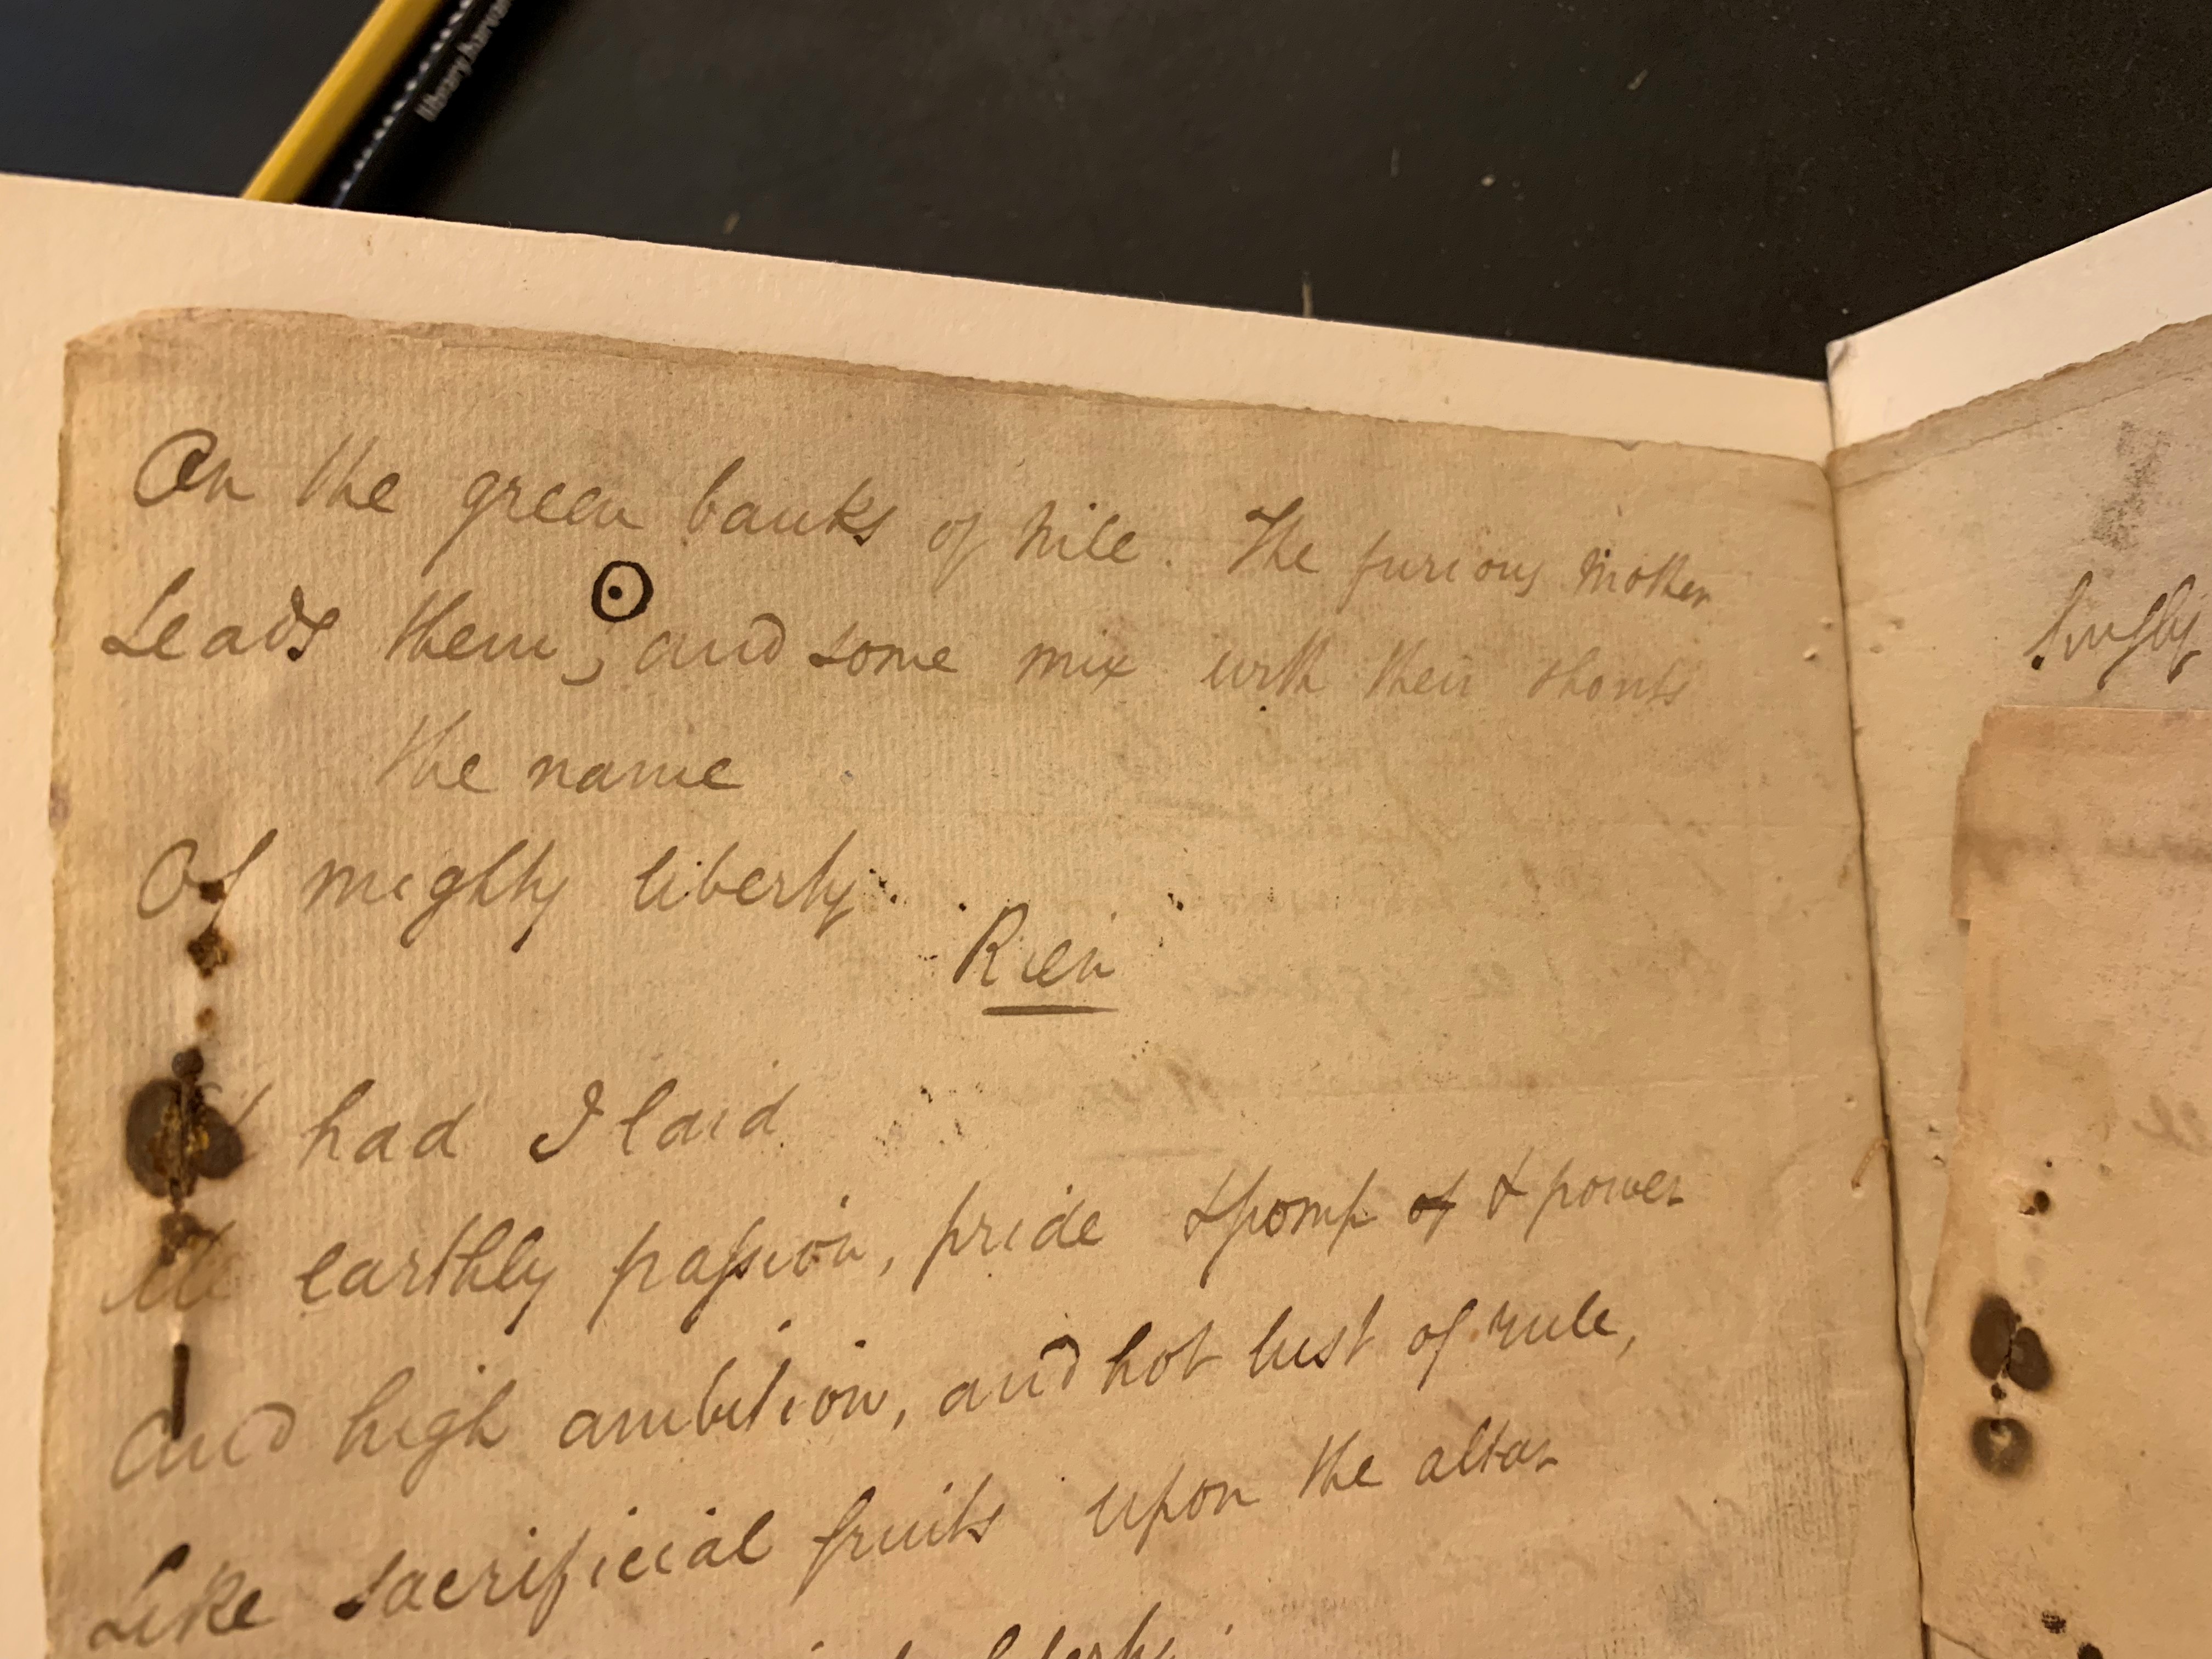 library.harva
On the green banks of Nile. The furious mother
Leads them; and some mix with their shouts
the name
Of mighty liberty.
Rien
had I laid
All earthly passion, pride & pomp of & power
And high ambition, and hot lust of rule,
Like sacrificial fruits upon the altar